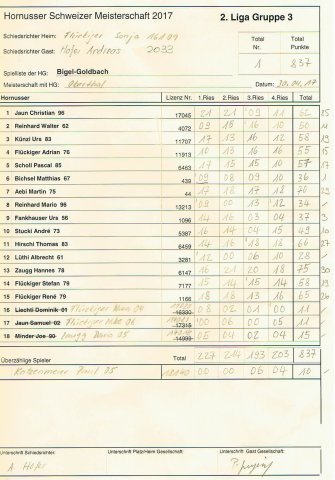 Hornusser Schweizer Meisterschaft 2017
2. Liga Gruppe 3
Schiedsrichter Heim: Flückiger Sonja 16109
Total Nr. Total Punkte
Schiedsrichter Gast: Hofer Andreas 2033
1 837
Spielliste der HG: Bigel-Goldbach
Meisterschaft mit HG: Oberthal Datum: 30.04.17
Hornusser Lizenz Nr. 1.Ries 2.Ries 3.Ries 4.Ries Total
1 Jaun Christian 96 17045 21 21 09 11 62 25
2 Reinhard Walter 62 4072 09 15 16 10 50 11
3 Künzi Urs 83 11707 17 13 16 12 58 19
4 Flückiger Adrian 76 11913 10 13 16 16 55 15
5 Scholl Pascal 85 6463 17 15 15 10 57 17
6 Bichsel Matthias 67 439 09 08 09 10 36 1
7 Aebi Martin 75 44 17 18 17 18 70 29
8 Reinhard Mario 96 13213 09 00 13 12 34
9 Fankhauser Urs 56 1096 14 16 03 04 37 3
10 Stucki André 73 5387 16 14 04 15 49 10
11 Hirschi Thomas 83 6459 14 16 18 18 66 27
12 Lüthi Albrecht 61 3281 12 00 06 10 28
13 Zaugg Hannes 78 6147 16 21 20 18 75 30
14 Flückiger Stefan 79 7177 15 14 15 14 58 19
15 Flückiger René 79 1166 18 18 13 16 65 26
16 Liechti Dominik 01 Flückiger 04 16330 08 02 01 00 11
17 Jaun Samuel 02 Flückiger 06 17315 00 06 00 05 11
18 Minder Joe 90 Zaugg 05 14999 05 04 02 04 15
Überzählige Spieler Total 227 214 193 203 837
05 00 00 06 04 10
Unterschrift Schiedsrichter: Unterschrift Platz/Heim Gesellschaft: Unterschrift Gast Gesellschaft:
A. Hofer